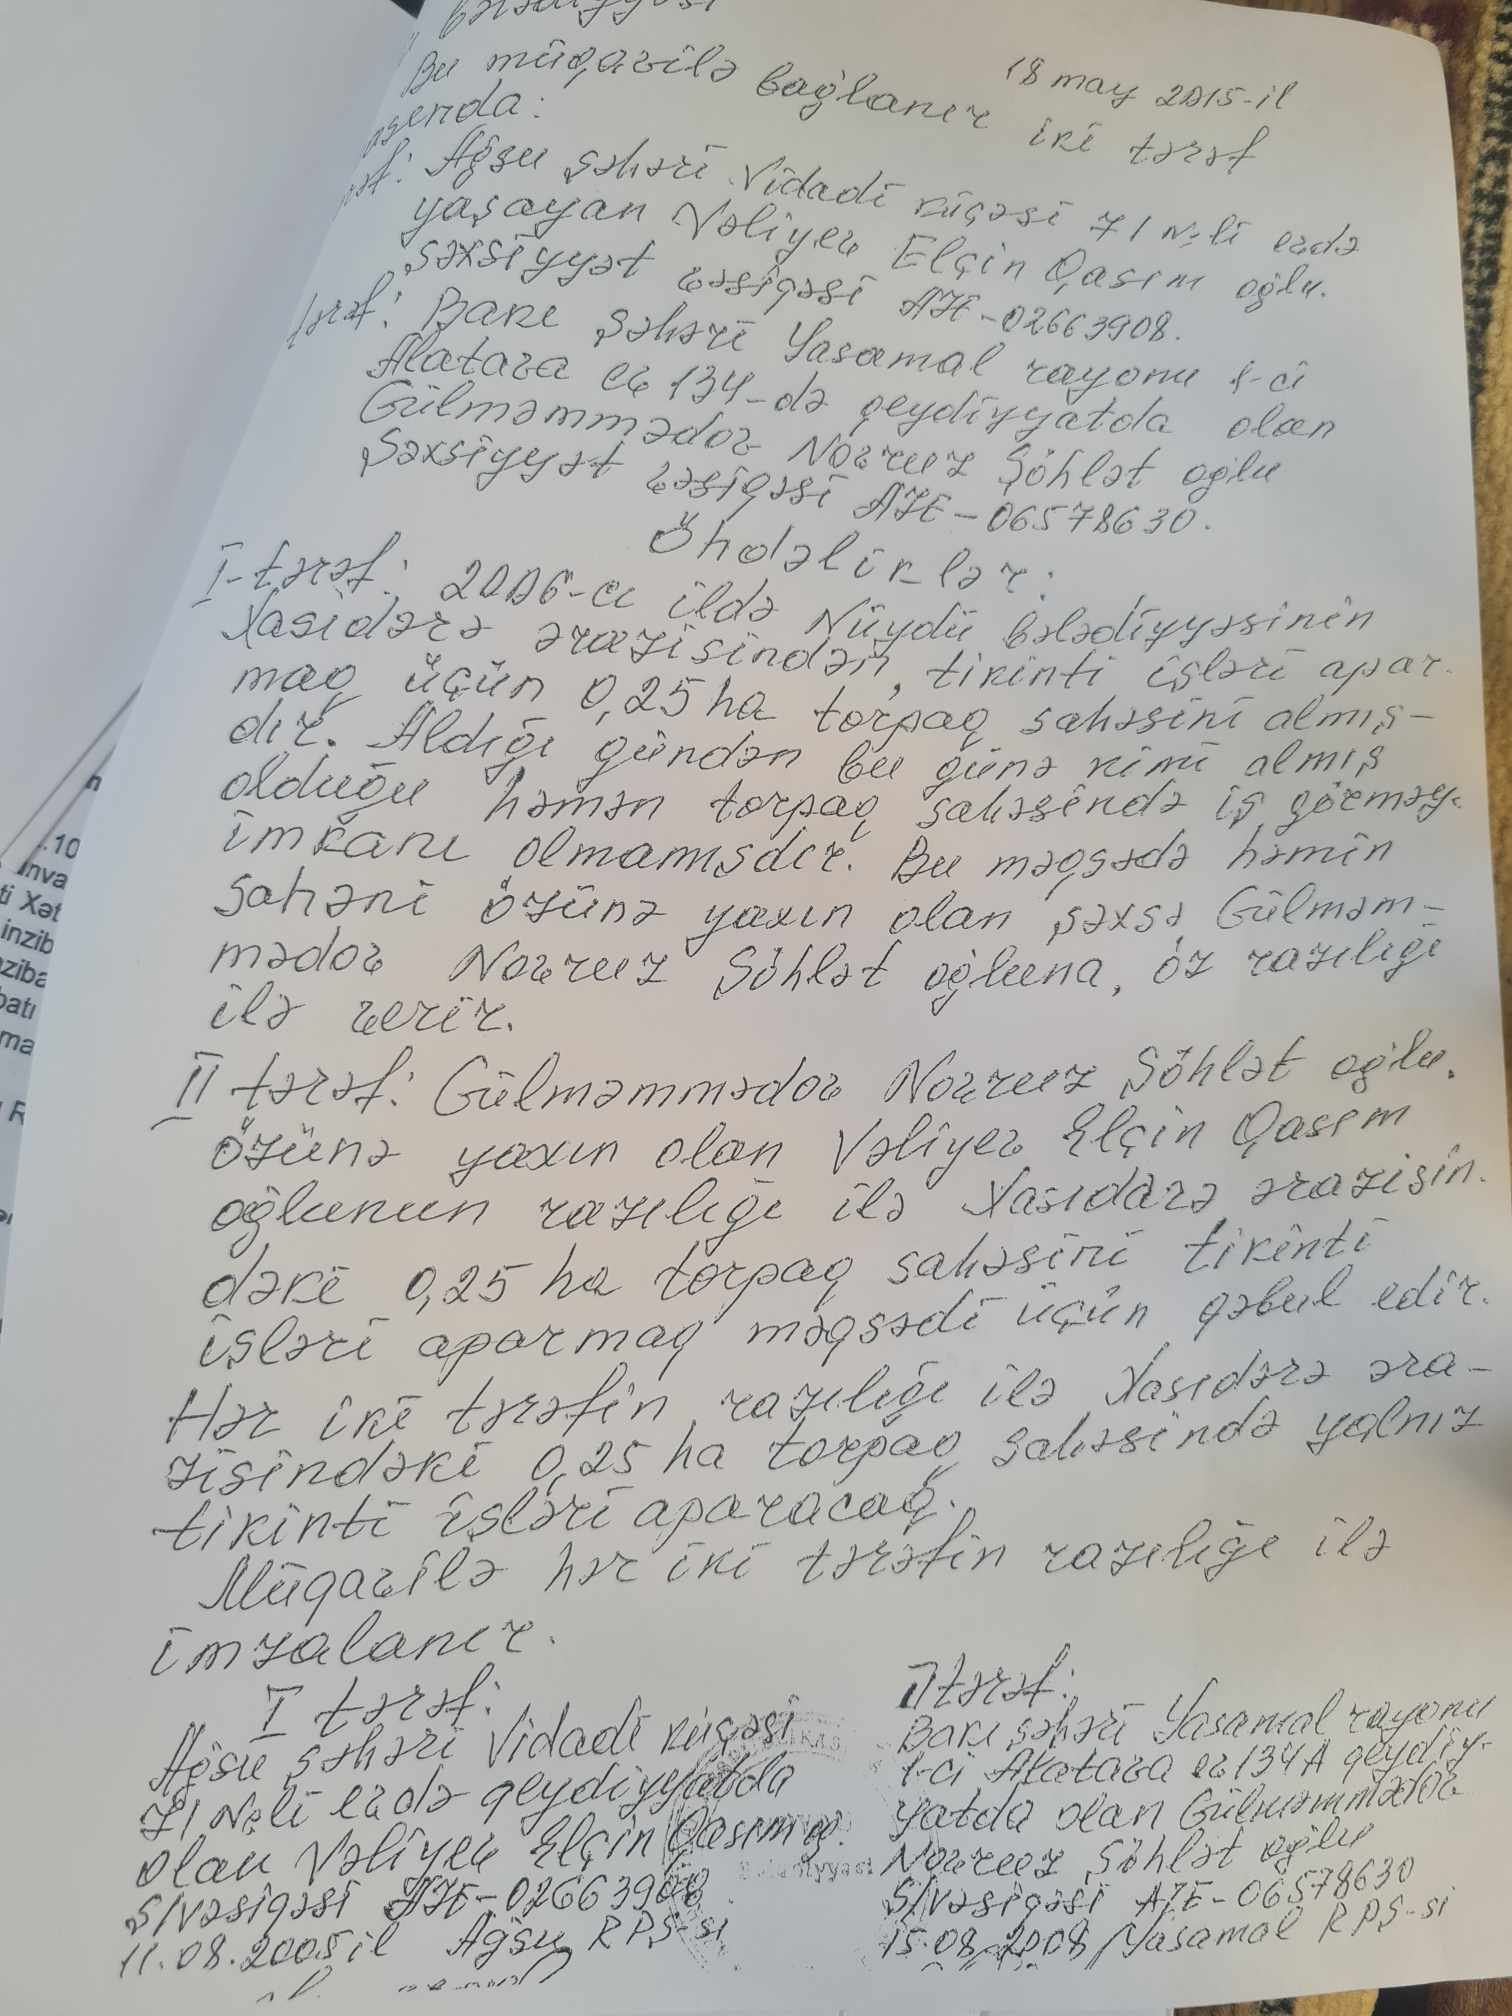 18 may 2015-il
Bu müqavilə bağlanır iki tərəf
asında:
Ağsu şəhəri Vidadi küçəsi 71 №-li evdə
yaşayan Vəliyev Elçin Qasım oğlu.
Şəxsiyyət vəsiqəsi AZE-02663908.
tərəf: Bakı şəhəri Yasamal rayonu 1-ci
Alatava ev 134-də qeydiyyatda olan
Gülməmmədov Novruz Şöhlət oğlu
Şəxsiyyət vəsiqəsi AZE-06578630.
Öhdəliklər:
I-tərəf: 2006-cı ildə Nüydü bələdiyyəsinin
Xasıdərə ərazisindən, tikinti işləri apar-
maq üçün 0,25 ha torpaq sahəsini almış-
dır. Aldığı gündən bu günə kimi almış
olduğu həmən torpaq sahəsində iş görməy-
imkanı olmamışdır. Bu məqsədə həmin
sahəni özünə yaxın olan şəxsə Gülməm-
mədov Novruz Şöhlət oğluna, öz razılığı
ilə verir.
II tərəf: Gülməmmədov Novruz Şöhlət oğlu.
özünə yaxın olan Vəliyev Elçin Qasım
oğlunun razılığı ilə Xasıdərə ərazisin-
dəki 0,25 ha torpaq sahəsini tikinti
işləri aparmaq məqsədi üçün qəbul edir.
Hər iki tərəfin razılığı ilə Xasıdərə əra-
zisindəki 0,25 ha torpaq sahəsində yalnız
tikinti işləri aparacaq.
Müqavilə hər iki tərəfin razılığı ilə
imzalanır.
I tərəf:
Ağsu şəhəri Vidadi küçəsi
71 №li evdə qeydiyyatda
olan Vəliyev Elçin Qasım o.
Ş/Vəsiqəsi AZE-02663908
11.08.2005 il Ağsu RPŞ-si
II tərəf:
Bakı şəhəri Yasamal rayonu
1-ci Alatava ev 134A qeydiy-
yatda olan Gülməmmədov
Novruz Şöhlət oğlu
Ş/Vəsiqəsi AZE-06578630
15.08.2008 Yasamal RPŞ-si